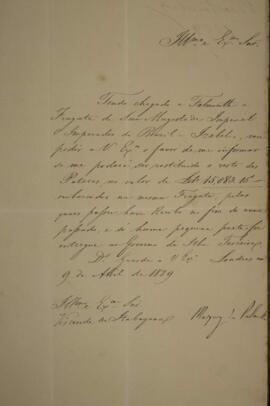 Illmo e Exmo Snr.
Tendo chegado a Falmouth a
Fragata de Sua Magestade Imperial
o Imperador do Brasil - Izabel -, vou
pedir a V Exa o favor de me informar
se me poderá ser restituido o resto das
Patacas, no valor de 15,083. 15
embarcadas na mesma Fragata, pelas
quaes passei hum Recibo no fim do mez
passado, e de huma pequena parte foi
entregue ao Governo da Ilha Terceira.
Ds Guarde a V Exa Londres
9 de Abril de 1829
Illmo e Exmo Snr.
Visconde de Itabayana Marquez de Palmella